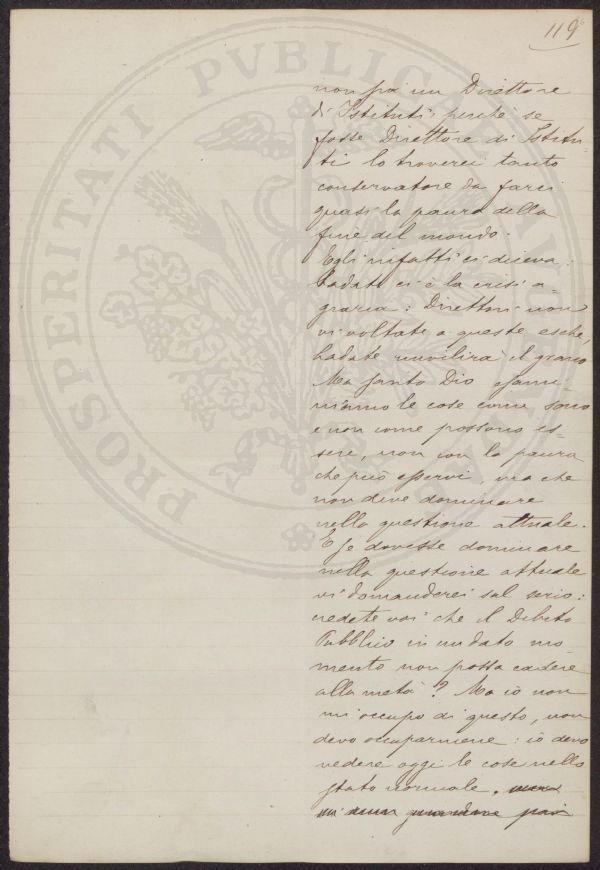 119
non sia un Direttore
di Istituti, perchè se
fosse Direttore di Istitu-
ti lo troverei tanto
conservatore da farci
quasi la paura della
fine del mondo.
Egli infatti ci diceva:
badate ci è la crisi a-
graria: Direttori non
vi voltate a queste esche,
badate rinvilirà il grano
Ma Santo Dio esami-
niamo le cose come sono
e non come possono es-
sere, non con la paura
che può esservi, ma che
non deve dominare
nella questione attuale.
E se dovesse dominare
nella questione attuale
vi domanderei sul serio:
credete voi che il Debito
Pubblico in un dato mo-
mento non possa cadere
alla metà? Ma io non
mi occupo di questo, non
devo occuparmene: io devo
vedere oggi le cose nello
stato normale.
PROSPERITATI PVBLICAE AVGENDAE